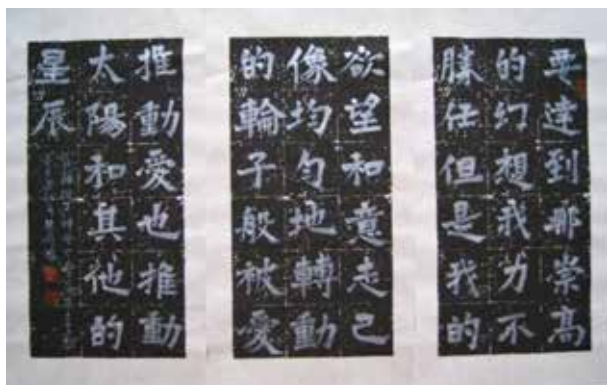 要達到那崇高
的幻想我力不
勝任但是我的
欲望和意走己
像均勻地轉動
的輪子般被愛
推動愛也推動
太陽和其他的
星辰